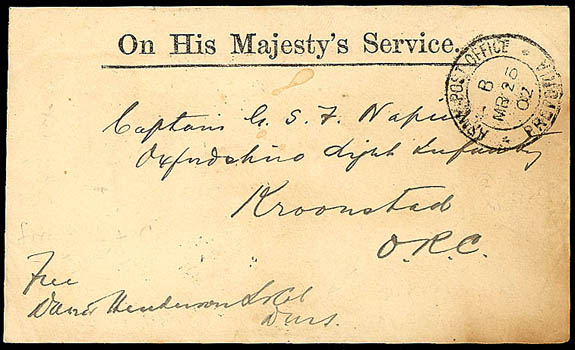 On His Majesty's Service.
ARMY POST OFFICE PRETORIA
B
MR 26
02
Captain G. S. F. Napier
Oxfordshire Light Infantry
Kroonstad
O.R.C.
Free
David Henderson Lt Col